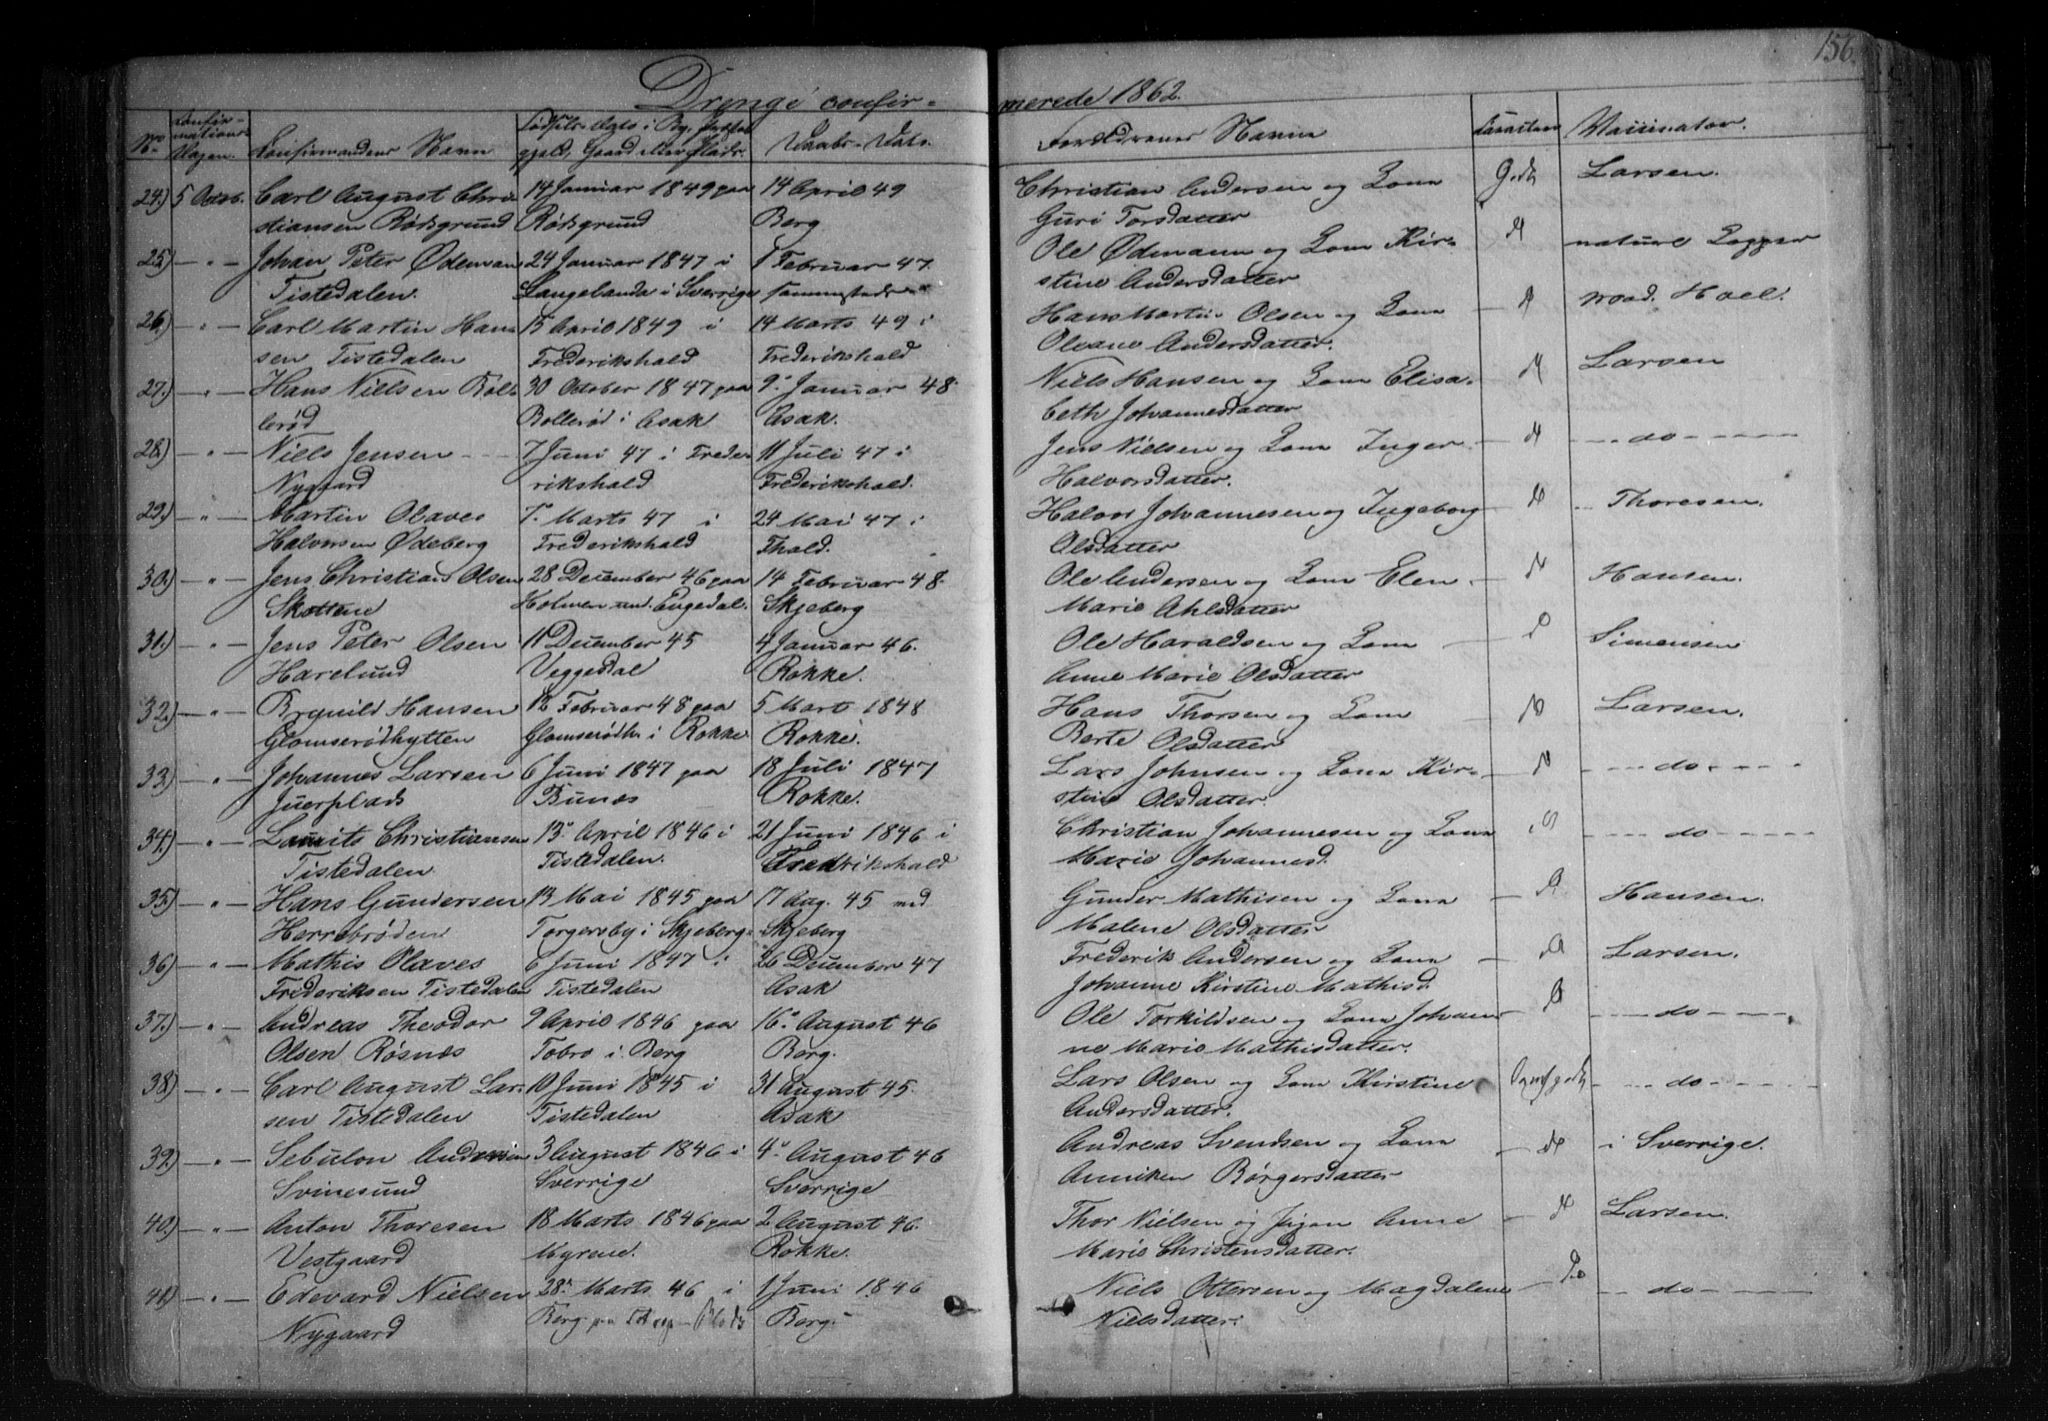 156.
Drenge confir- merede 1862.
No Confirmations Dagen. Confirmandens Navn Fødsels-Dato i By, Præstegjeld, Gaard eller Plads. Daabs-Dato. Forældrenes Navne Vaccinator.
24.) 5 Octob. Carl August Chri- 14 Januar 1849 paa 14 April 49 Christian Andersen og Kone Godt Larsen.
stiansen Rødsgrund Rødsgrund Berg Guri Torsdatter
25.) — " — Johan Peter Ødeman 24 Januar 1847 i 1 Februar 47. Ole Ødemann og Kone Kir- naturl Kopper
Tistedalen. Langelanda i Sverrige sammesteds stine Andersdatter
26.) — " — Carl Martin Han- 15 April 1849 i 14 Marts 49 i Hans Martin Olsen og Kone Hoel.
sen Tistedalen Frederikshald Frederikshald Oleane Andersdatter.
27.) — " — Hans Nielsen Bol- 30 October 1847 paa 9. Januar 48. Niels Hansen og Kone Elisa- Larsen
lerød Bollerød i Asak Asak. beth Johannesdatter
28.) — " — Niels Jensen 7 Juni 47 i Frede- 11 Juli 47 i Jens Nielsen og Kone Inger — do —
Nygaard rikshald Frederikshald. Halvorsdatter.
29.) — " — Martin Olaves 7. Marts 47 i 24 Mai 47 i Halvor Johannesen og Ingeborg Thoresen.
Halvorsen Ødeberg Frederikshald Fhald. Olsdatter
30.) — " — Jens Christian Olsen 28 December 46 paa 14 Februar 48. Ole Andersen og Kone Elen Hansen.
Skottene Holmen und. Engedal. Skjeberg Marie Ahlsdatter
31.) — " — Jens Peter Olsen 11 December 45 4 Januar 46. Ole Haraldsen og Kone Simensen
Harelund Veggedal Rokke. Anne Marie Olsdatter
32.) — " — Brynild Hansen 12 Februar 48 paa 5 Mart 1848 Hans Thorsen og Kone Larsen.
Glomserødhytten Glomserødh. i Rokke Rokke. Berte Olsdatter
33.) — " — Johannes Larsen 6 Juni 1847 paa 18 Juli 1847 Lars Johnsen og Kone Kir- — do —
Juerplads Bunæs Rokke. stine Olsdatter.
34.) — " — Laurits Christiansen 13. April 1846 i 21 Juni 1846 i Christian Johannesen og Kone — do —
Tistedalen Tistedalen. Fredrikshald Marie Johannesd.
35.) — " — Hans Gundersen 13 Mai 1845 paa 17 Aug. 45 ved Gunder Mathisen og Kone Hansen.
Herrebrøden Torgersby i Skjeberg. Skjeberg Malene Olsdatter
36.) — " — Mathis Olaves 6 Juni 1847 i 26 December 47 Frederik Andersen og Kone Larsen.
Frederiksen Tistedalen Tistedalen Asak Johanne Kirstine Mathisd.
37.) — " — Andreas Theodor 9 April 1846 paa 16. August 46 Ole Torkildsen og Kone Johan- — do —
Olsen Røsnæs Tobro i Berg Berg. ne Marie Mathisdatter.
38.) — " — Carl August Lar- 10 Juni 1845 i 31 August 45. Lars Olsen og Kone Kirstine — do —
sen Tistedalen Tistedalen Asak Andersdatter.
39.) — " — Sebulon Andersen 3 August 1846 i 4. August 46 Andreas Svendsen og Kone i Sverrige.
Svinesund Sverrige Sverrige Anniken Børgersdatter
40.) — " — Anton Thoresen 18 Marts 1846 paa 2 August 46. Thor Nielsen og Pigen Anne Larsen.
Vestgaard Myrene. Rokke. Marie Christensdatter.
41.) — " — Edevard Nielsen 28. Marts 46 i 1 Juni 1846 Niels Ottersen og Magdalene — do —
Nygaard Berg paa Berg. Nielsdatter.